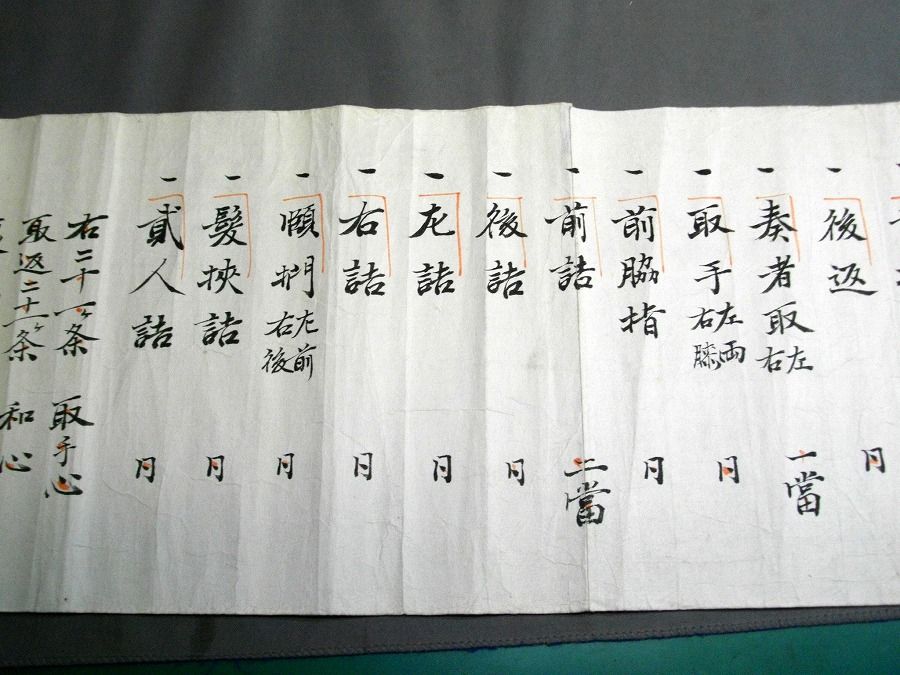 一 後返 月
一 奏者取 左右 一當
一 取手 左右 両膝 月
一 前脇指 月
一 前詰 二當
一 後詰 月
一 左詰 月
一 右詰 月
一 頤搠 左右 前後 月
一 髪挾詰 月
一 貳人詰 月
右二十一ヶ条 取手心
取返二十一ヶ条 和心